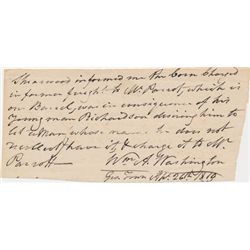 Sherwood informed me the Corn Charged
in former freight to Mr Parrot, which is
one Barrel, was in consequence of his
young man Richardson desiring him to
let a man whose name he does not
recollect have it, & charge it to Mr
Parrott
Wm A. Washington
Geo Town Nov. 20th 1819